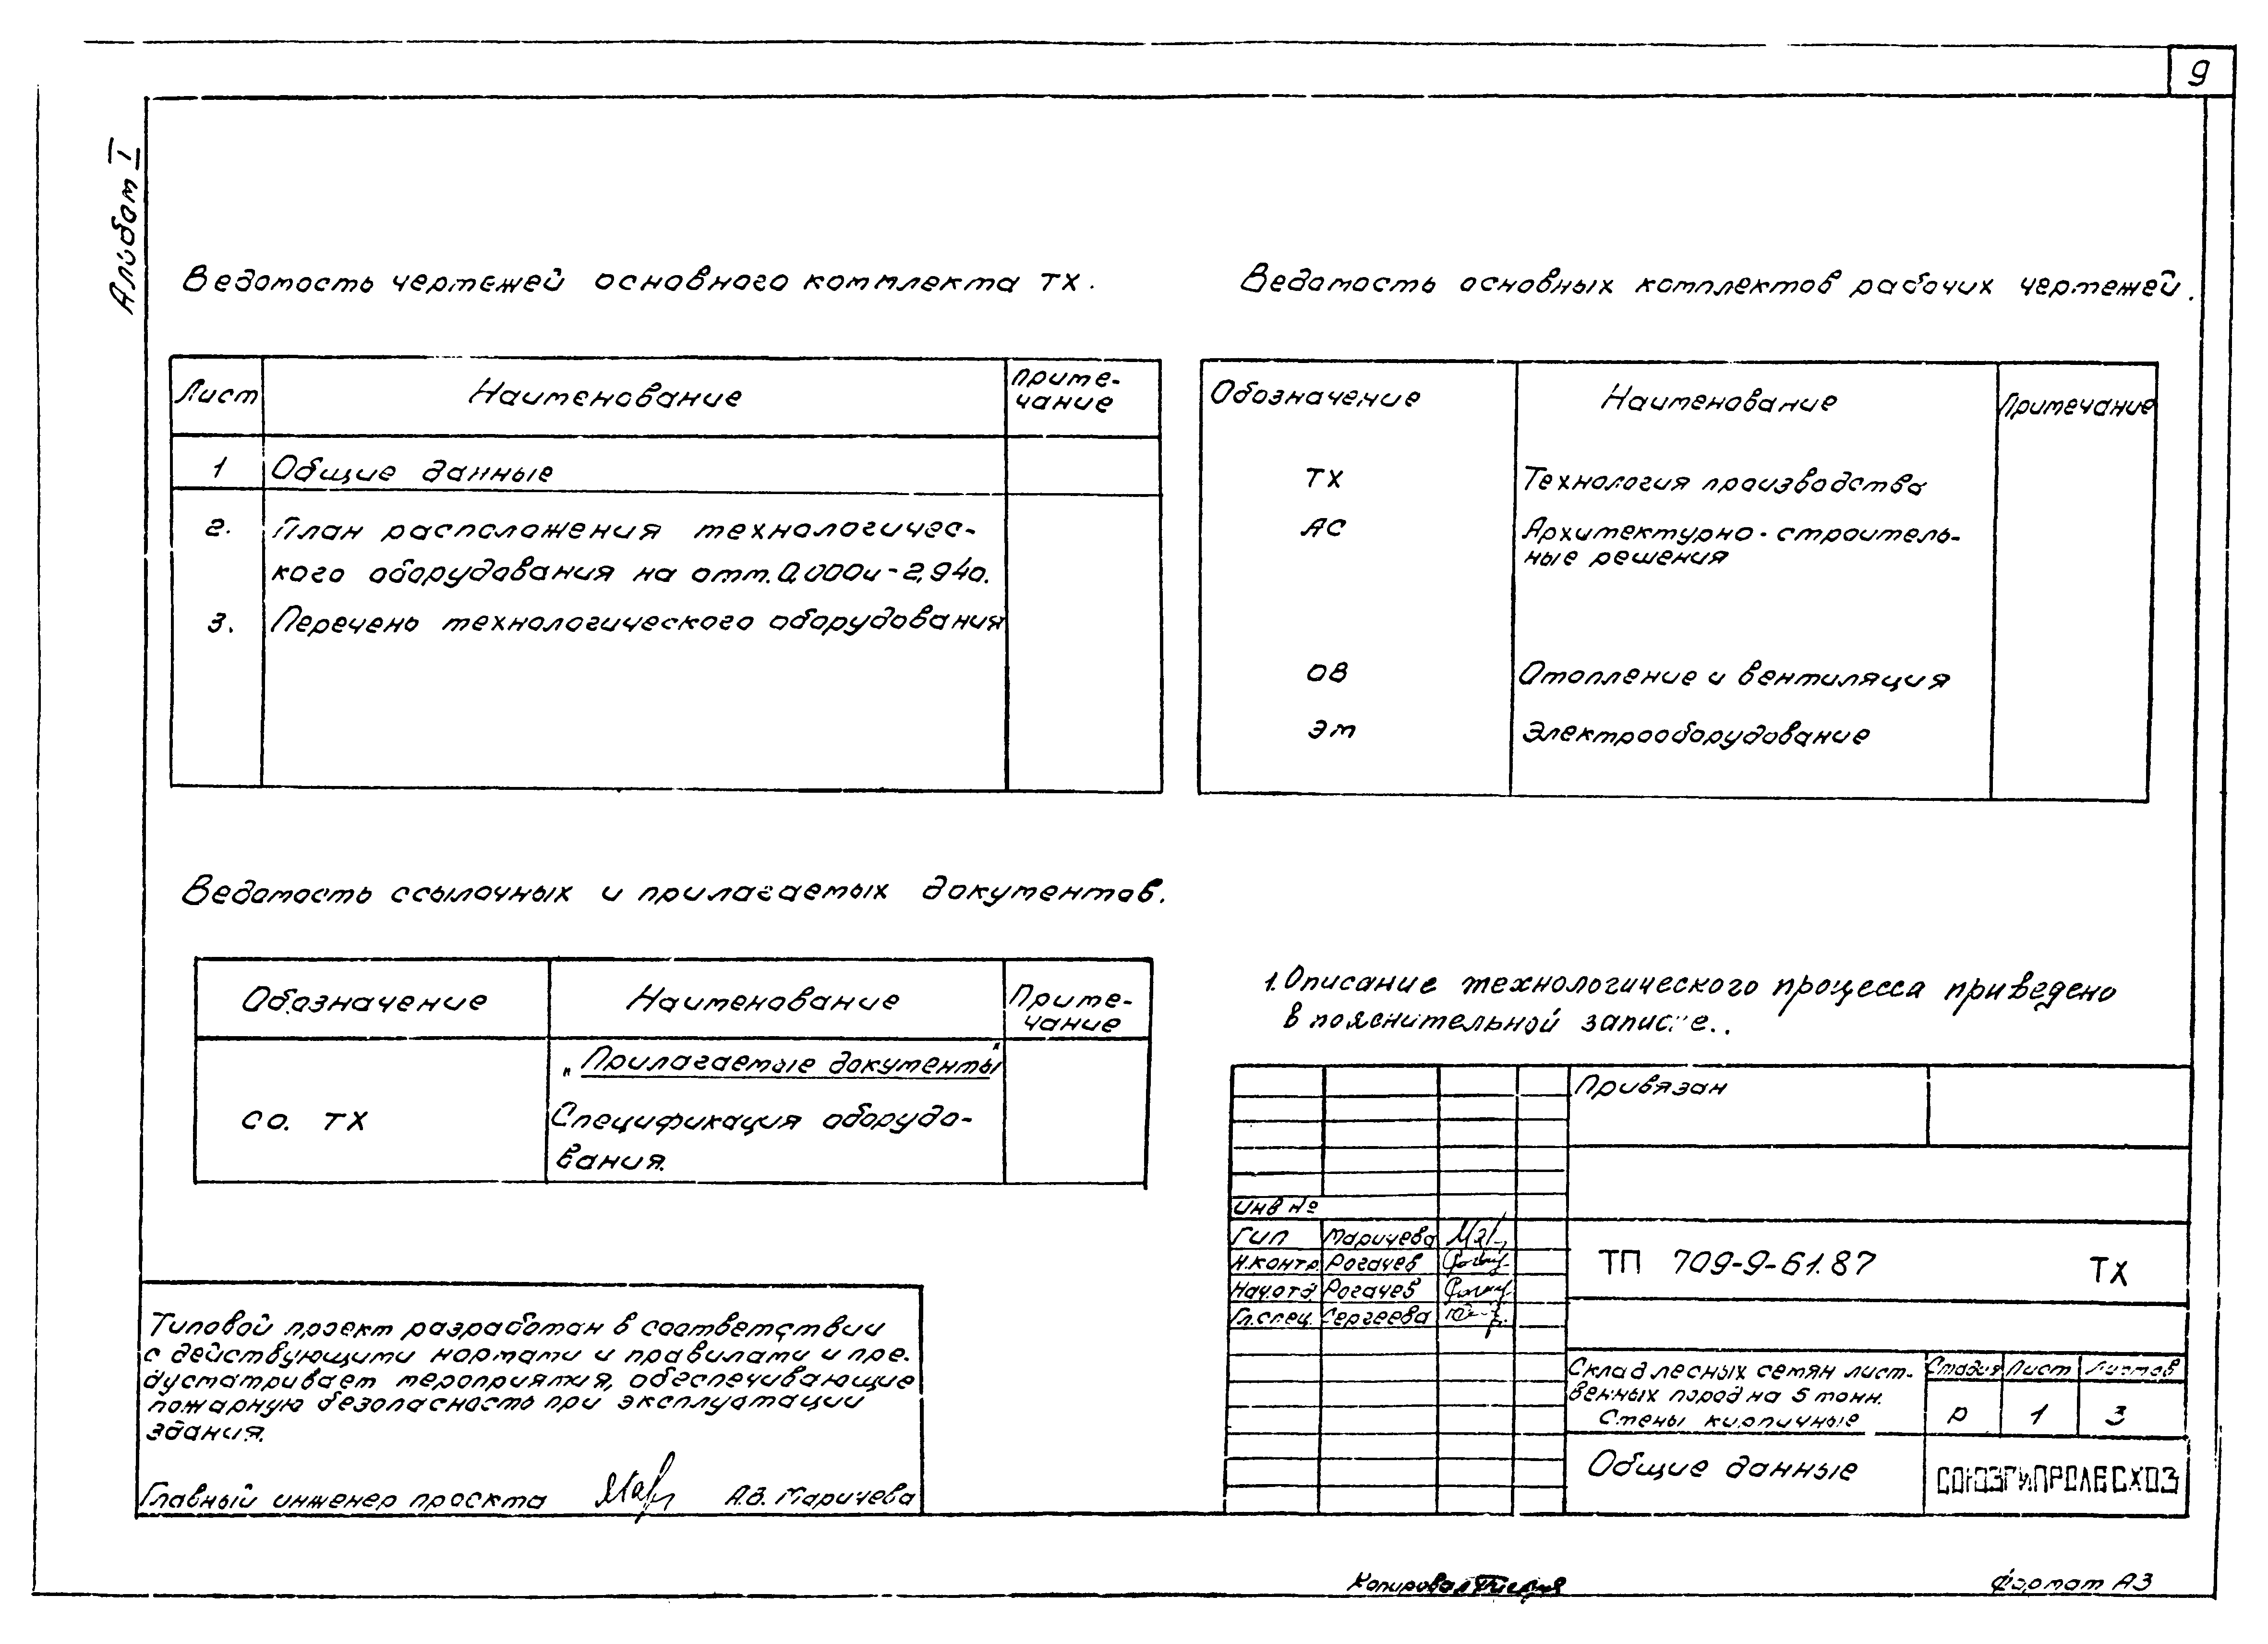 9
Альбом I
Ведомость чертежей основного комплекта ТХ.
Лист Наименование Приме-
чание
1 Общие данные
2. План расположения технологичес-
кого оборудования на отм. 0,000 и -2,940.
3. Перечень технологического оборудования
Ведомость основных комплектов рабочих чертежей.
Обозначение Наименование Примечание
ТХ Технология производства
АС Архитектурно-строитель-
ные решения
ОВ Отопление и вентиляция
ЭМ Электрооборудование
Ведомость ссылочных и прилагаемых документов.
Обозначение Наименование Приме-
чание
„Прилагаемые документы"
СО. ТХ Спецификация оборудо-
вания.
1. Описание технологического процесса приведено
в пояснительной записке..
Типовой проект разработан в соответствии
с действующими нормами и правилами и пре-
дусматривает мероприятия, обеспечивающие
пожарную безопасность при эксплуатации
здания.
Главный инженер проекта А.В. Маричева
Привязан
Инв №
ГИП Маричева
Н.контр. Рогачев
Нач.отд. Рогачев
Гл.спец. Сергеева
ТП 709-9-61.87 ТХ
Склад лесных семян лист-
венных пород на 5 тонн.
Стены кирпичные
Стадия Лист Листов
Р 1 3
Общие данные
СОЮЗГИПРОЛЕСХОЗ
Копировал
Формат А3